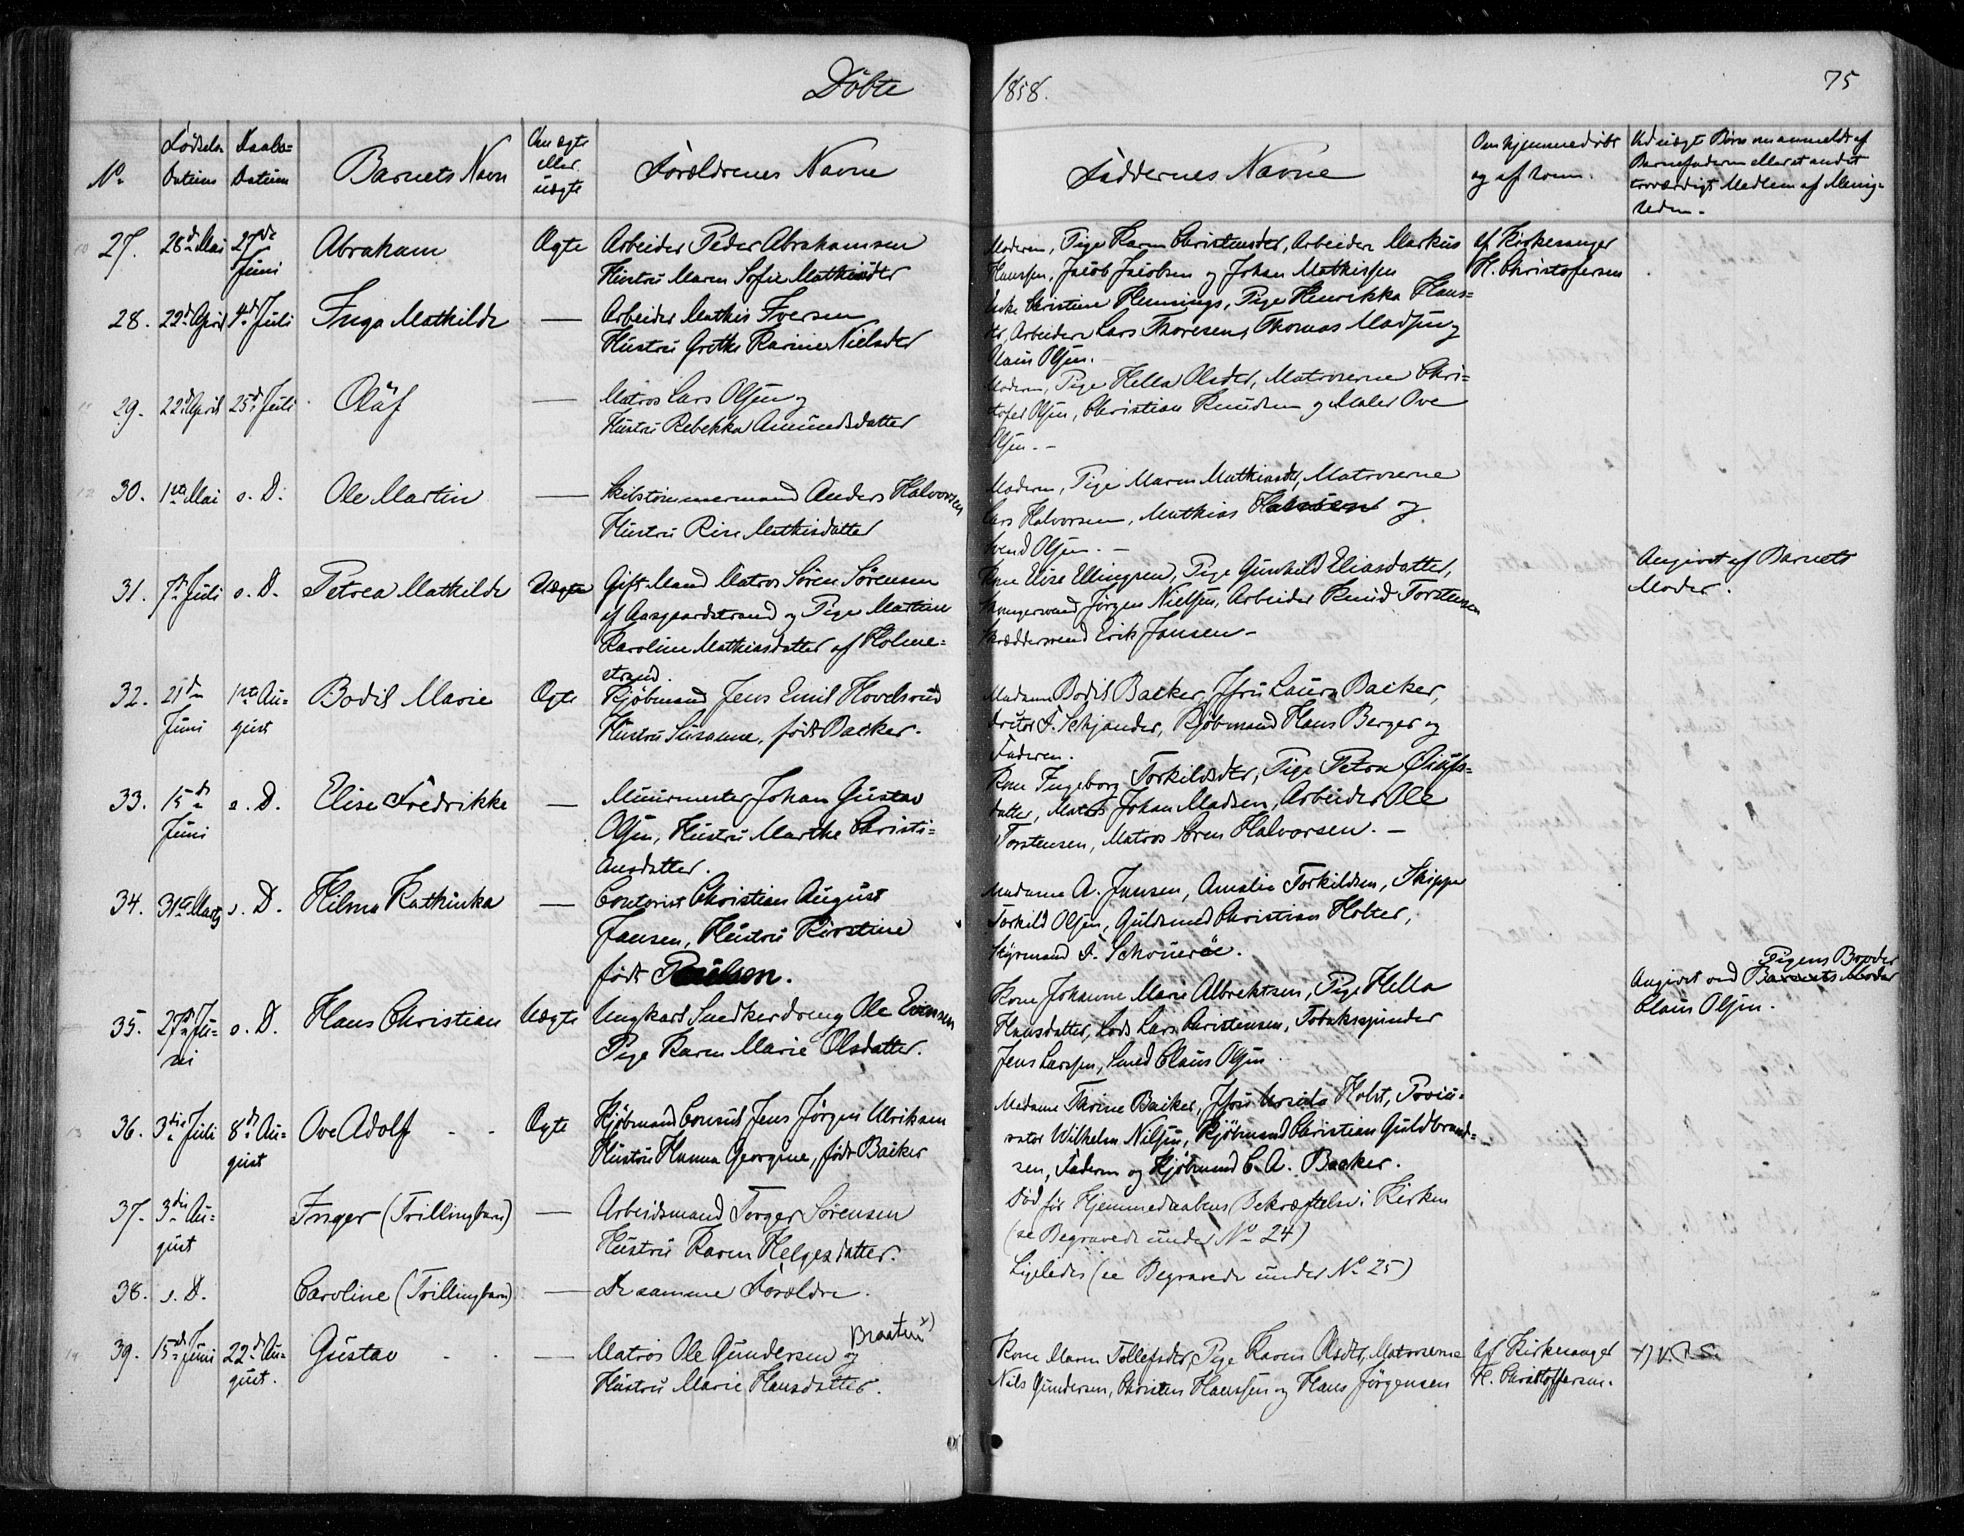 Döbte
1858.
75
No
Födsels-
Datum
Daabs-
Datum
Barnets Navn
Om ægte
eller
uægte
Forældrenes Navne
Faddernes Navne
Om hjemmedöbt
og af hvem.
Ved uægt Börn om anmeldt af
Barnefaderen eller et andet
troværdigt Medlem af Menig-
heden.
27.
28de Mai
27de
Juni
Abraham
Ægte
Arbeider Peder Abrahamsen
Hustru Maren Sofie Mathisdter
Moderen, Pige Karen Christensdter, Arbeidere Markus
Hanssen, Jacob Jacobsen og Johan Mathissen
af Kirkesanger
H. Christofersen
28.
22de April
4de Juli
Inga Mathilde
—
Arbeider Mathis Iversen
Hustru Grethe Karine Nielsdter
Enke Christine Hennings, Pige Henrikka Hans-
dtr, Arbeidere Lars Thoresen, Thomas Madsen og
Claus Olsen.
29.
22de April
25de Juli
Olaf
—
Matros Lars Olsen og
Hustru Rebekka Amundsdatter
Moderen, Pige Hella Olsdtr, Matroserne Chri-
stofer Olsen, Christian Knudsen og Maler Ove
Olsen. –
30.
1ste Mai
s. D.
Ole Martin
—
Skibstömmermand Anders Halvorsen
Hustru Rise Mathisdatter
Moderen, Pige Maren Mathiasdtr, Matroserne
Lars Halvorsen, Mathias Hansen og
Svend Olsen. –
31.
7de Juli
s. D.
Petrea Mathilde
Uægte
Gift Mand Matros Sören Sörensen
af Aasgaardstrand og Pige Martine
Karoline Mathiasdatter af Holme-
strand.
Kone Elise Ellingsen, Pige Gunhild Eliasdatter,
Jörgen Nielsen, Arbeider Knud Torstensen
Skræddersvend Erik Jansen –
Angivet af Barnets
Moder.
32.
21de
Juni
1ste Au-
gust
Bodil Marie
Ægte
Kjöbmand Jens Emil Hovelsrud
Hustru Susanne, födt Backer.
Madame Bodil Backer, Jfru Laura Backer,
Doctor F. Schjander, Kjöbmand Hans Berger og
Faderen.
33.
15de
Juni
s. D.
Elise Fredrikke
—
Muurmester Johan Gustav
Olsen, Hustru Marthe Christi-
ansdatter.
Kone Ingeborg Torkildsdtr, Pige Petra
datter, Matros Johan Madsen, Arbeider Ole
Torstensen, Matros Sören Halvorsen. –
34.
31te Marts
s. D.
Hilma Kathinka
—
Contorist Christian August
Jansen, Hustru Kirstine
födt Paulsen.
Madame A. Jansen, Amalie Torkildsen, Skipper
Torkild Olsen, Guldsmed Christian Holter,
Styrmand F.
35.
27de Ju-
ni
s. D.
Hans Christian
Uægte
Ungkarl Snedkerdreng Ole Evensen
Pige Karen Marie Olsdatter.
Kone Johanne Marie Albrektsen, Pige Hella
Hansdatter, Lods Lars Christensen, Tobakspinder
Jens Larssen, Smed Claus Olsen
Pigens Broder
Angivet ved Barnets Moder
Claus Olsen.
36.
3die Juli
8de Au-
gust
Ove Adolf
Ægte
Kjöbmand Consul Jens Jörgen Ulriksen
Hustru Hanna Georgine, födt Backer
Madame Thrine Backer, Jfru Holst, Provi-
sator Wilhelm Nilsen, Kjöbmand Christian Guldbrand-
sen, Faderen og Kjöbmand C. A. Backer.
37.
3die Au-
gust
Inger (Trillingbarn)
—
Arbeidsmand Torger Sörensen
Hustru Karen Helgesdatter.
Död för Hjemmedaabens Bekræftelse i Kirken
(se Begravede under No 24)
38.
s. D.
Caroline (Trillingbarn)
—
De samme Forældre.
Ligeledes (se Begravede under No 25)
39.
15de Juni
22de Au-
gust.
Gustav
—
Braaten x)
Matros Ole Gundersen og
Hustru Marie Hansdatter.
Kone Maren Tollefsdtr, Pige Karen Olsdtr, Matroserne
Nils Gundersen, Christen Hanssen og Hans Jörgensen
Af Kirkesanger
H. Christoffersen.